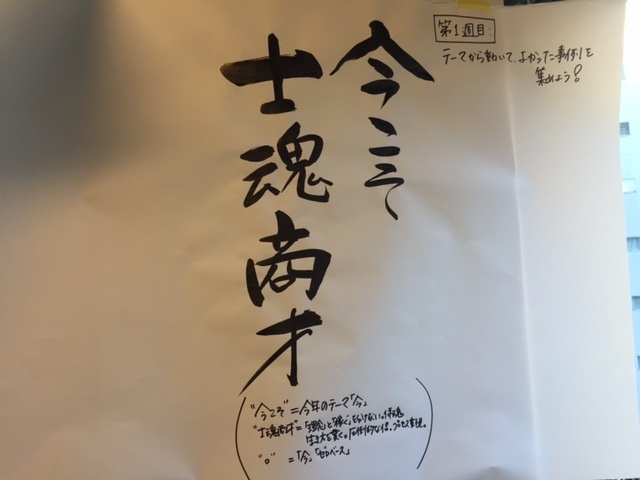 今こそ
士魂商才
第1週目:
テーマから動いて、よかった事例を
集めよう!
"今こそ"=今年のテーマ「今」
"士魂商才"=「理念」と「稼ぐ」
生き方を貫く。
"。"=「今」「ゼロベース」